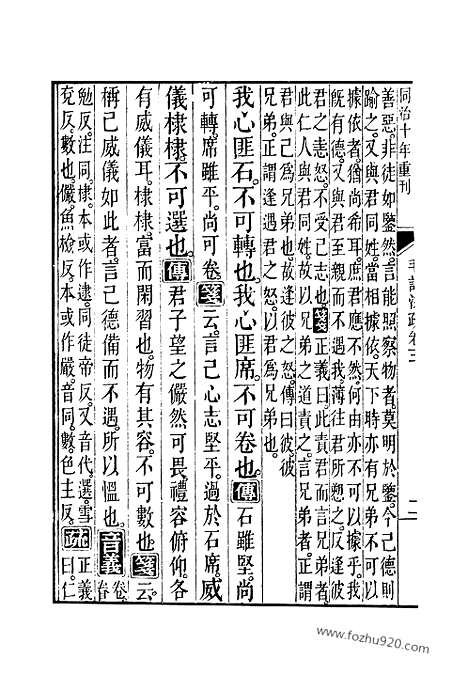 同治十年重刊 毛詩注疏卷三
善惡。非徒如鑒然。言能照察物者。莫明於鑒。今己德則
踰之。又與君同姓。當相據依。天下時亦有兄弟不可以
據依者。猶尚希耳。庶君應不然。何由亦不可以據乎。我
既有德。又與君至親。而不遇我。薄往君所愬之。反逢彼
君之恚怒。不受己志也。箋正義曰。此責君而言兄弟者。
此仁人與君同姓。故以兄弟之道責之。言兄弟者。正謂
君與己為兄弟也。故逢彼之怒。傳曰。彼。彼
兄弟。正謂逢遇君之怒。以君為兄弟也。
我心匪石。不可轉也。我心匪席。不可卷也。傳石雖堅。尚
可轉。席雖平。尚可卷。箋云。言己心志堅平。過於石席。威
儀棣棣。不可選也。傳君子望之儼然可畏。禮容俯仰。各
有威儀耳。棣棣。富而閑習也。物有其容。不可數也。箋云。
稱己威儀如此者。言己德備而不遇。所以慍也。音義卷眷
勉反。注同。棣。本或作逮。同。徒帝反。又音代。選。雪
兗反。數也。儼。魚檢反。本或作嚴。音同。數。色主反。疏正義曰。仁
www.fozhu920.com